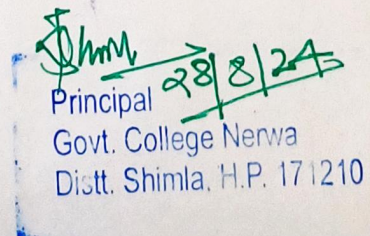 28/8/24
Principal
Govt. College Nerwa
Distt. Shimla, H.P. 171210